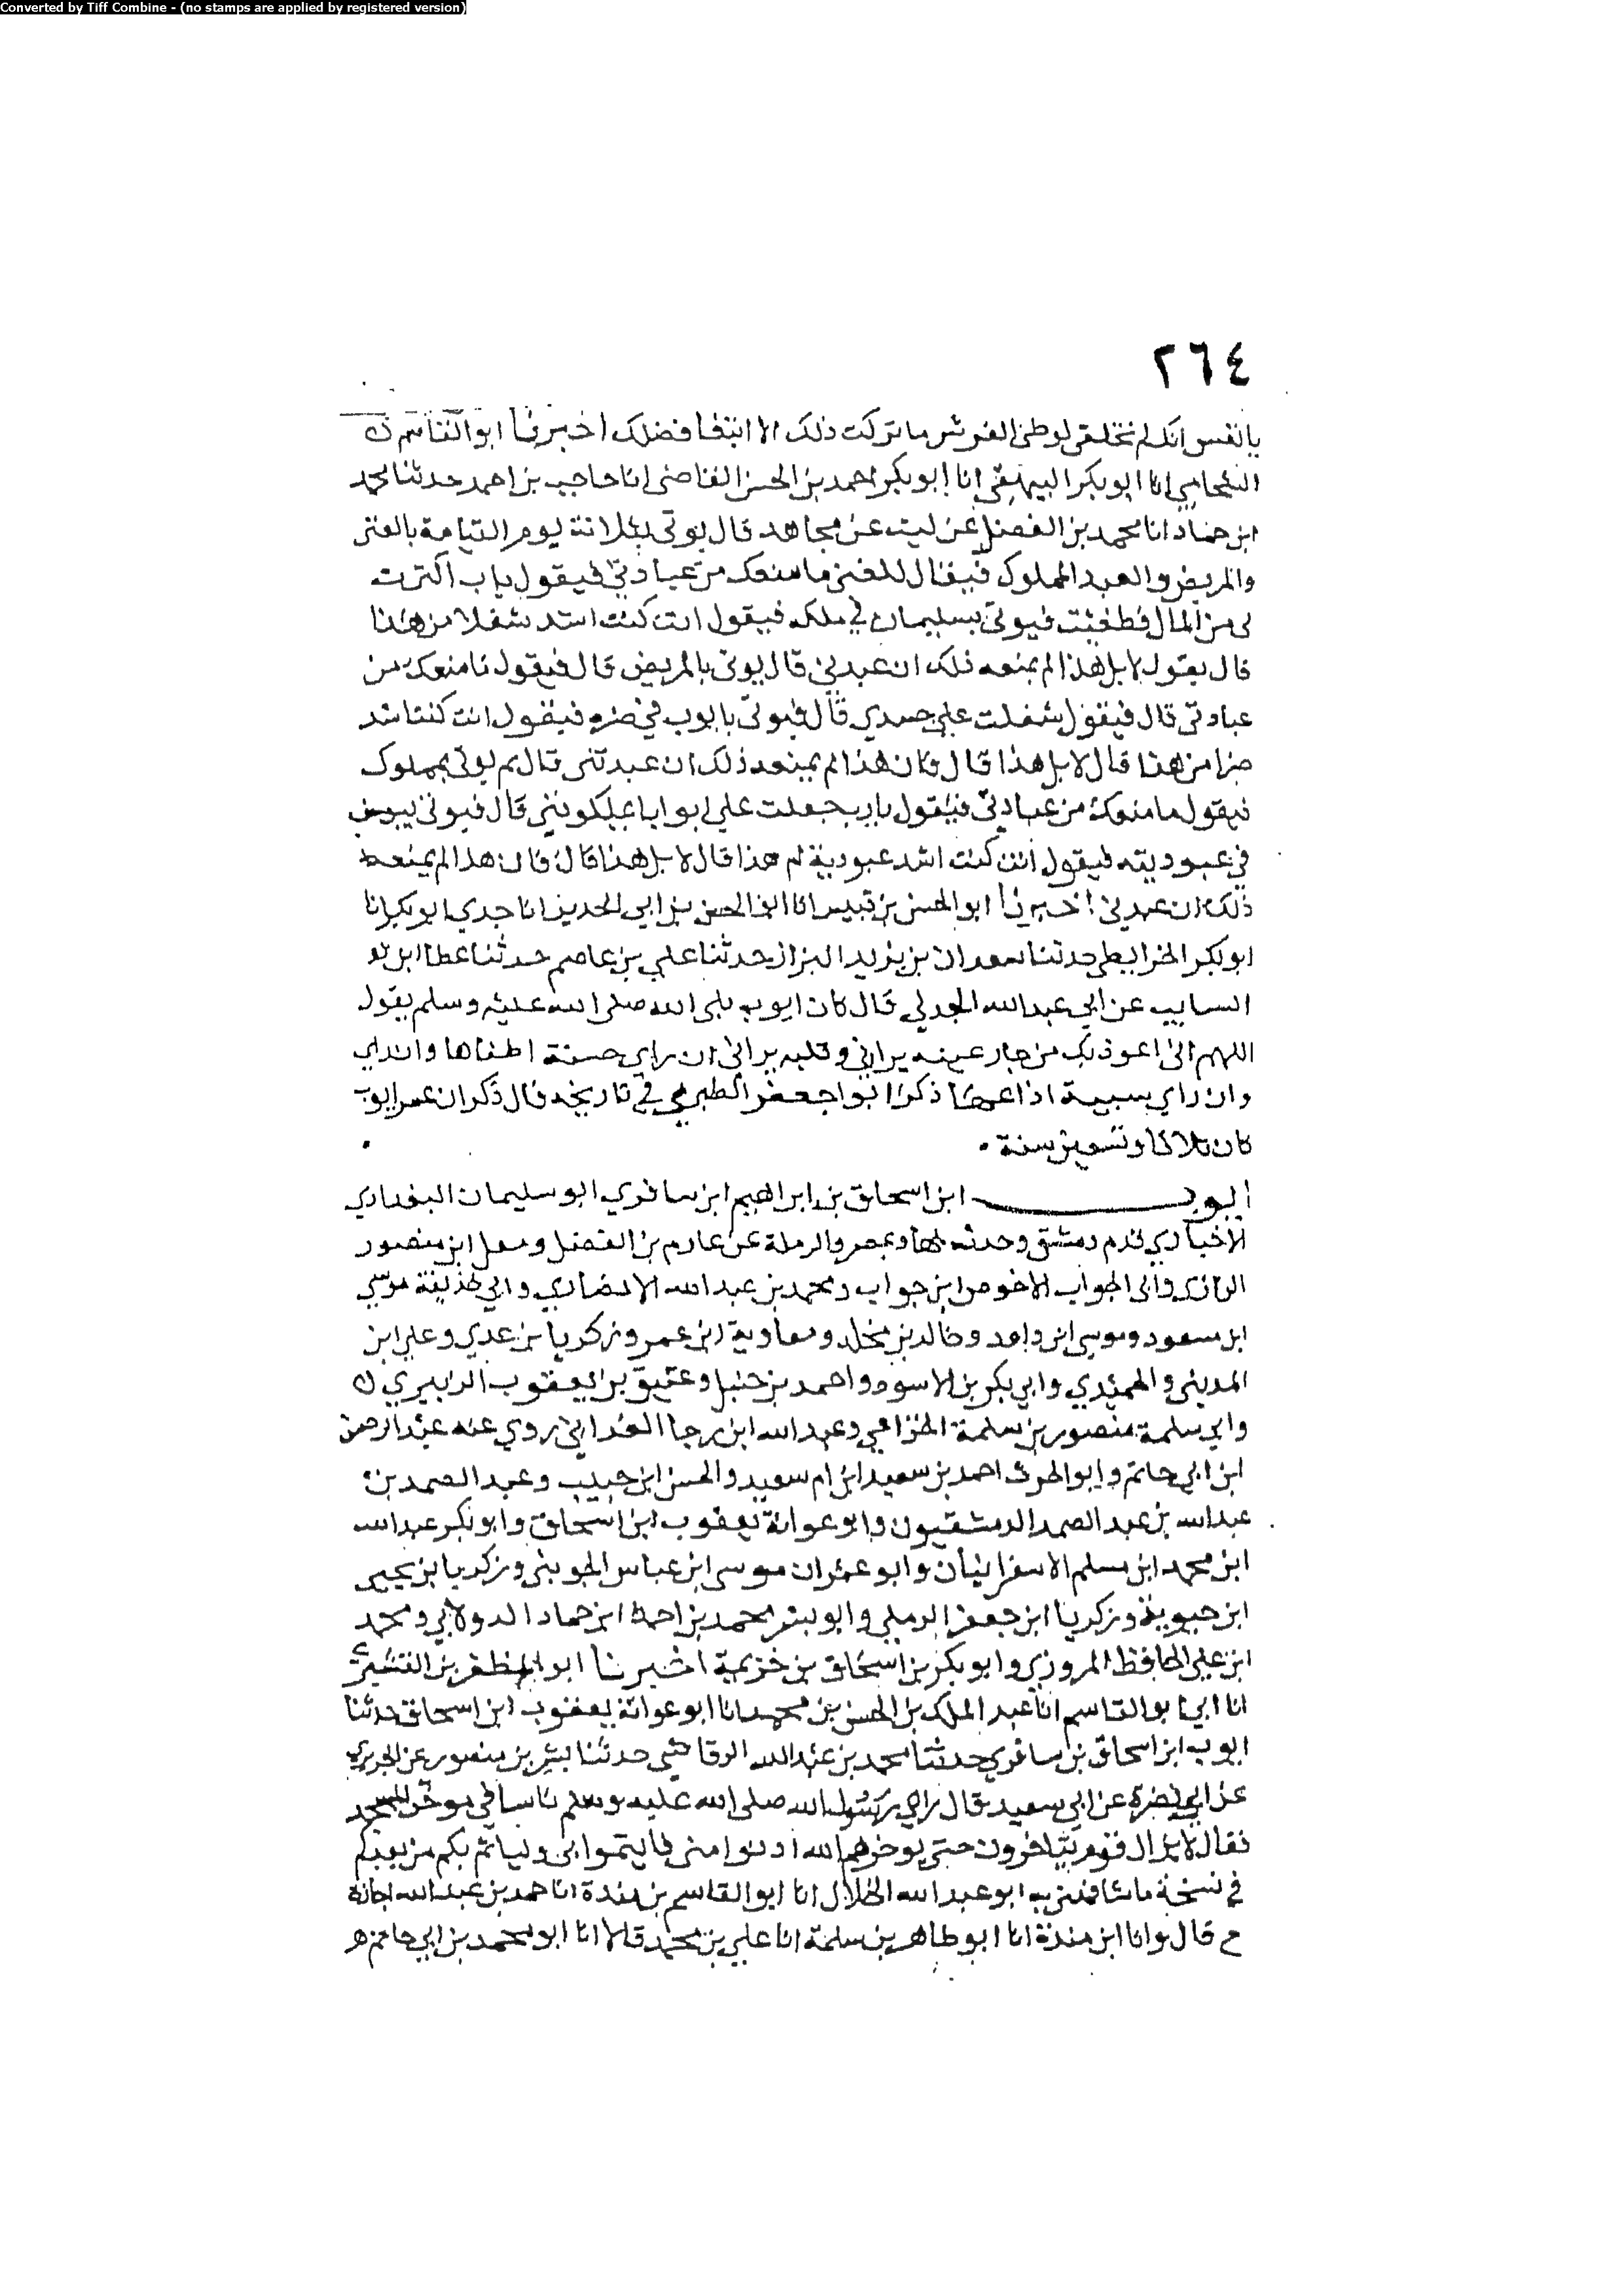 Converted by Tiff Combine - (no stamps are applied by registered version)
٢٦٤
يا نفس انك لم تخلقي لوطئ الفرش ما تركت ذلك الا ابتغا فضلك اخبرنا ابو القاسم
الشحامي انا ابو بكر البيهقي انا ابو بكر احمد بن الحسن القاضي انا حاجب بن احمد حدثنا محمد
ابن حماد انا محمد بن الفضل عن ليث عن مجاهد قال يوتى بثلاثة يوم القيامة بالغنى
والمريض والعبد المملوك فيقال للغنى ما منعك من عبادتي فيقول يا رب اكثرت
لى من المال فطغيت فيوتى بسليمان في ملكه فيقول انت كنت اشد شغلا من هذا
قال يقول لا بل هذا لم يمنعه ذلك ان عبدني قال يوتى بالمريض قال فيقول ما منعك من
عبادتي قال فيقول شغلت على جسدي قال فيوتى بايوب في ضره فيقول انت كنت اشد
ضرا من هذا قال لا بل هذا قال فان هذا لم يمنعه ذلك ان عبدتنى قال ثم يوتى بمملوك
فيقول ما منعك من عبادتي فيقول يا رب جعلت علي ابوابا يملكونني قال فيوتى بيوسف
في عبوديته فيقول انت كنت اشد عبودية ام هذا قال لا بل هذا قال فان هذا لم يمنعه
ذلك ان عبدني اخبرنا ابو الحسن بن قبيس انا ابو الحسن بن ابي الحديد انا جدي ابو بكر انا
ابو بكر الخرايطي حدثنا سعدان بن يزيد البزاز حدثنا علي بن عاصم حدثنا عطا ابن
السايب عن ابي عبد الله الجدلي قال كان ايوب نبى الله صلى الله عليه وسلم يقول
اللهم انى اعوذ بك من جار عينه يراني وقلبه يرانى ان راي حسنة اطفاها
وان راي سيية اذاعها ذكر ابو اجعفر الطبري في تاريخه قال ذكر ان عمر ايوب
كان ثلاثا وتسعين سنة
ايوب ابن اسحاق بن ابراهيم ابن سافري ابو سليمان البغدادي
الاخباري قدم دمشق وحدث بها وبمصر والرملة عن عارم بن الفضل ومعلى ابن منصور
الرازي وابى الجواب الاحوص ابن جواب ومحمد بن عبد الله الانصاري وابي حذيفة موسي
ابن مسعود وموسى ابن داود وخالد بن مخلد ومعاوية ابن عمر وزكريا بن عدي وعلي ابن
المديني والحميدي وابي بكر بن الاسود واحمد بن حنبل وعتيق بن يعقوب الزبيري
وابي سلمة منصور بن سلمة الخزاعي وعبد الله ابن رجا الغداني روي عنه عبد الرحمن
ابن ابي حاتم وابو الحرث احمد بن سعيد ابن ام سعيد والحسن ابن حبيب وعبد الصمد بن
عبد الله بن عبد الصمد الدمشقيون وابو عوانة يعقوب ابن اسحاق وابو بكر عبد الله
ابن محمد ابن مسلم الاسفراينيان وابو عمران موسى ابن عباس الجويني وزكريا بن يحيى
ابن حيوية وزكريا ابن جعفر الرملي وابو بشر محمد بن احمد ابن حماد الدولابي ومحمد
ابن علي الحافظ المروزي وابو بكر بن اسحاق بن خزيمة اخبرنا ابو المظفر بن القشيري
انا ابي ابو القاسم انا عبد الملك بن الحسن بن محمد انا ابو عوانة يعقوب ابن اسحاق حدثنا
ايوب ابن اسحاق بن سافري حدثنا محمد بن عبد الله الرقاشي حدثنا بشر بن منصور عن الجريري
عن ابي نضرة عن ابي سعيد قال راي رسول الله صلى الله عليه وسلم ناسا في موخر المسجد
فقال لا يزال قوم يتاخرون حتى يوخرهم الله ادنوا منى فاليتموا بى ولياتم بكم من بعدكم
في نسخة ما شافهني به ابو عبد الله الخلال انا ابو القاسم بن مندة انا حمد بن عبد الله اجازة
ح قال وانا ابن مندة انا ابو طاهر بن سلمة انا علي بن محمد قالا انا ابو محمد بن ابي حاتم